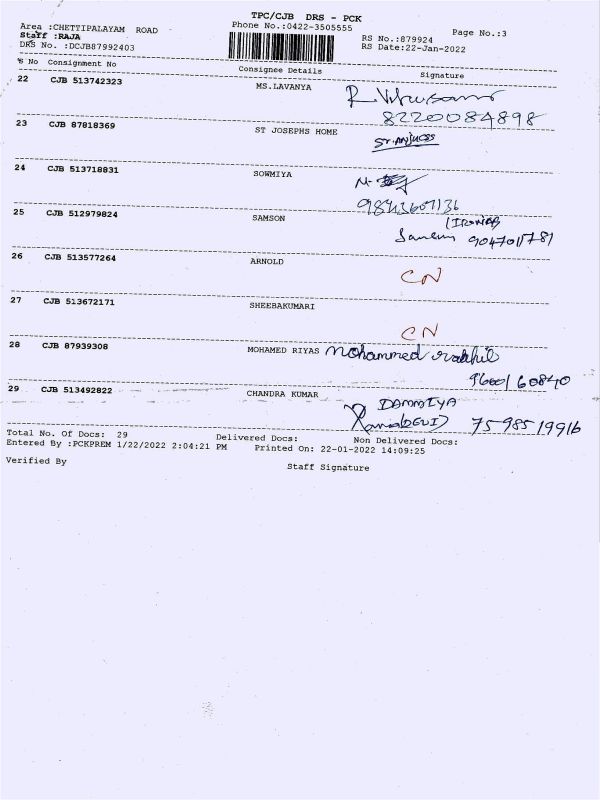 TPC/CJB DRS - PCK
Area :CHETTIPALAYAM ROAD Phone No.:0422-3505555 Page No.:3
Staff :RAJA RS No.:879924
DRS No. :DCJB87992403 RS Date:22-Jan-2022
S No Consignment No Consignee Details Signature
22 CJB 513742323 MS.LAVANYA
8220084898
23 CJB 87818369 ST JOSEPHS HOME
24 CJB 513718831 SOWMIYA
9843607136
25 CJB 512979824 SAMSON
9047011781
26 CJB 513577264 ARNOLD CN
27 CJB 513672171 SHEEBAKUMARI CN
28 CJB 87939308 MOHAMED RIYAS Mohammed
9600160840
29 CJB 513492822 CHANDRA KUMAR
7598519916
Total No. Of Docs: 29 Delivered Docs: Non Delivered Docs:
Entered By :PCKPREM 1/22/2022 2:04:21 PM Printed On: 22-01-2022 14:09:25
Verified By Staff Signature